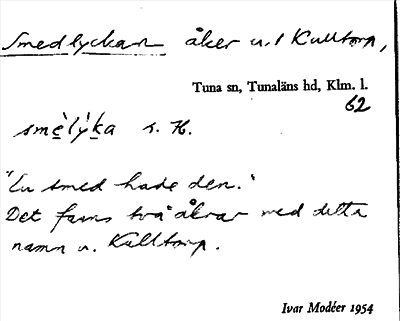 Smedlyckan åker u. Kulltorp,
Tuna sn, Tunaläns hd, Klm. l.
62
smèlýka s. H.
"En smed hade den."
Det fanns två åkrar med detta
namn u. Kulltorp.
Ivar Modéer 1954